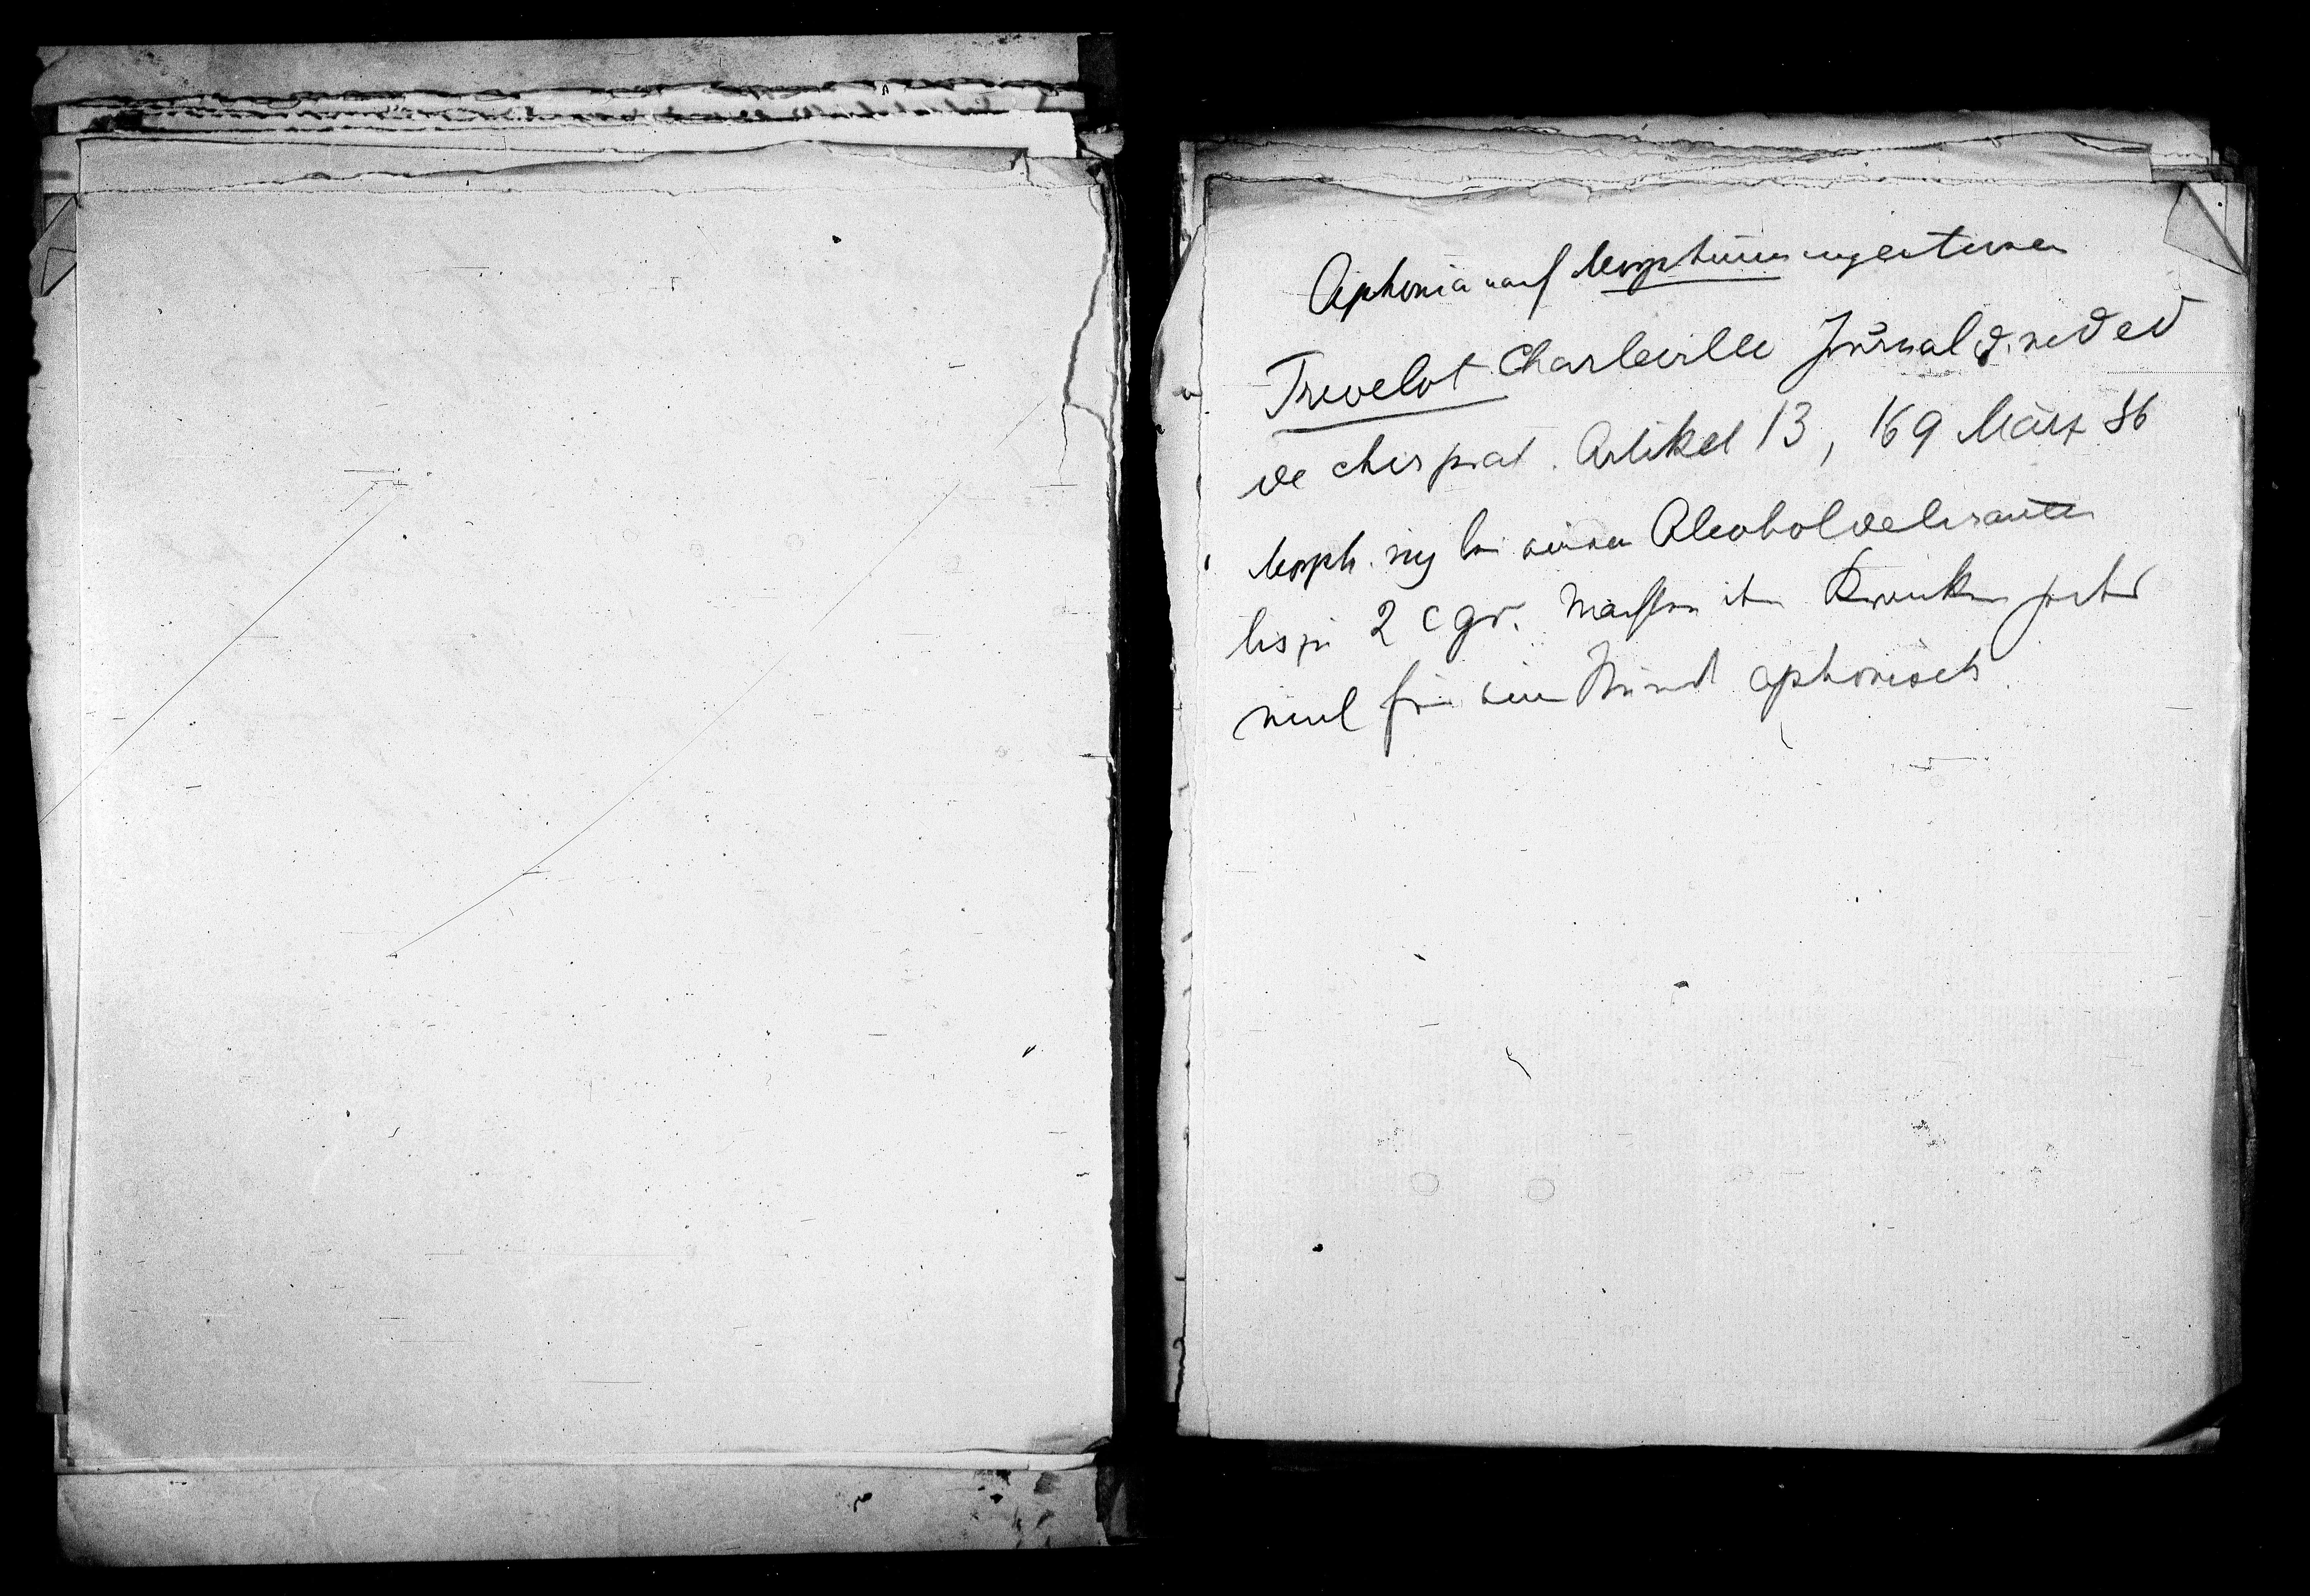 Aphonia nach Morphiuminjectionen
Trevelot Charleville Journal d. med et
de chir prat. Artikel 13, 169 März 86
Morph. inj bei einem Alcoholdeliranten
bis zu 2 cgr. machten den Kranken jedes
mal für eine Stunde aphonisch.